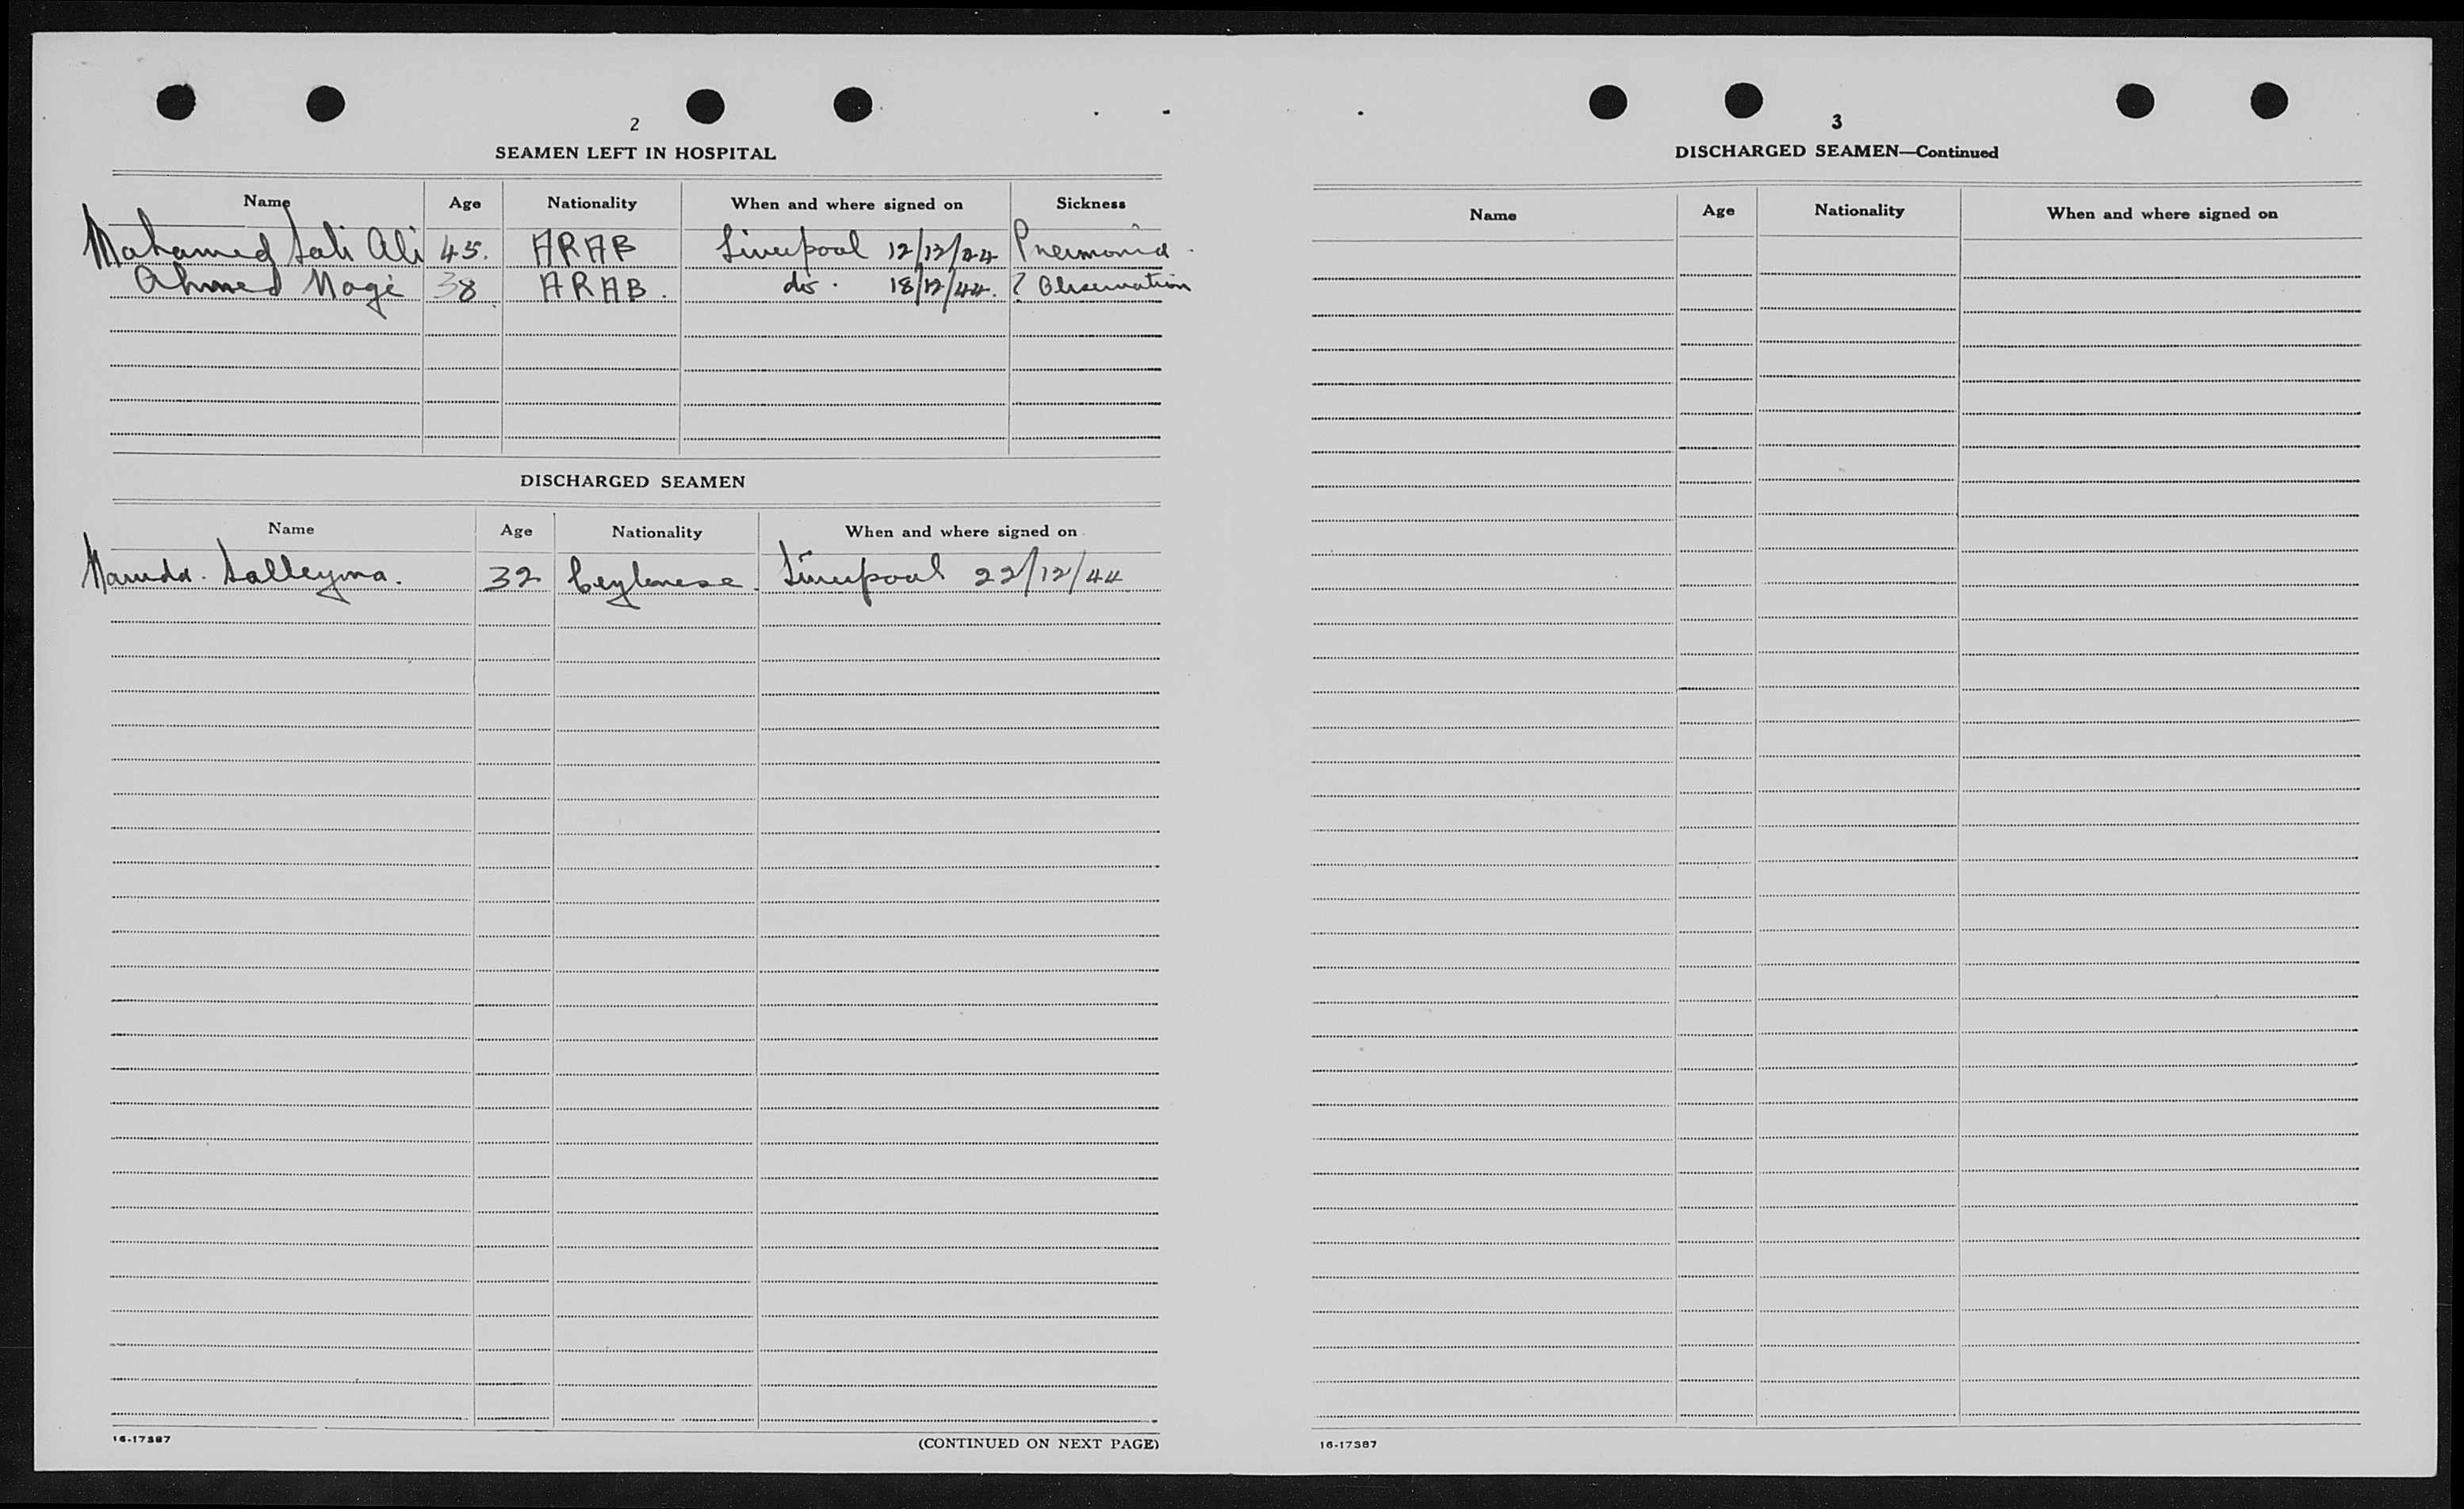 2
SEAMEN LEFT IN HOSPITAL
Name Age Nationality When and where signed on Sickness
Mahamed Sali Ali 45. ARAB Liverpool 12/12/44 Pneumonia
Ahmed Nagi 38 ARAB. do. 18/12/44. ? Observation
DISCHARGED SEAMEN
Name Age Nationality When and where signed on
Salleyma. 32 Ceylonese. Liverpool 22/12/44
16-17387
(CONTINUED ON NEXT PAGE)
3
DISCHARGED SEAMEN—Continued
Name Age Nationality When and where signed on
16-17387